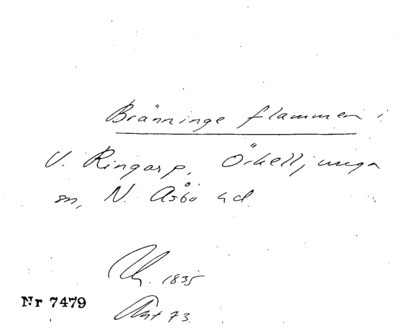 Bränninge flammen i
V. Ringarp, Örkelljunga
sn, N. Åsbo hd.
1835
Nr 7479
Ant 73.